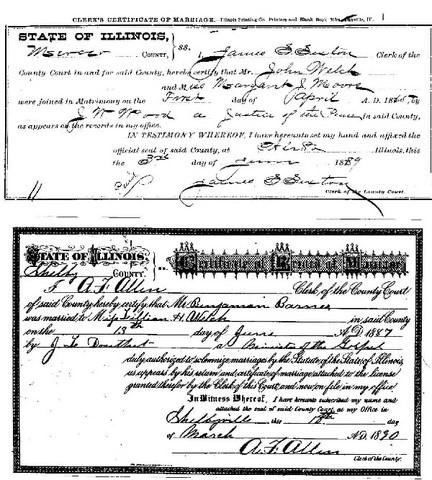 CLERK'S CERTIFICATE OF MARRIAGE.
STATE OF ILLINOIS,
Mercer COUNTY, } SS. I, James Sexton Clerk of the
County Court in and for said County, hereby certify that Mr. John Welch
and Miss Margaret J Moore
were joined in Matrimony on the First day of April A. D. 18 by
J W Wood a Justice of the Peace in said County,
as appears on the records in my office.
IN TESTIMONY WHEREOF, I have hereunto set my hand and affixed the
official seal of said County, at Aledo Illinois, this
the 3rd day of June 1889
James Sexton
Clerk of the County Court.
STATE OF ILLINOIS,
Shelby COUNTY.
Certificate of Record of Marriage
I, A.F. Allen Clerk, of the County Court
of said County hereby certify that Mr. Benjamin Barnes
was married to Miss Lillian H. Welch in said County
on the 13th day of June A.D. 1887
by J a Minister of the Gospel
duly authorized to solemnize marriages by the Statute of the State of Illinois,
as appears by his return and certificate of marriage attached to the license
granted therefor by the Clerk of this Court, and now on file in my office.
In Witness Whereof, I have hereunto subscribed my name and
attached the seal of said County Court, at my Office in
Shelbyville this day
of March A.D. 1890
A.F. Allen
Clerk of the County.